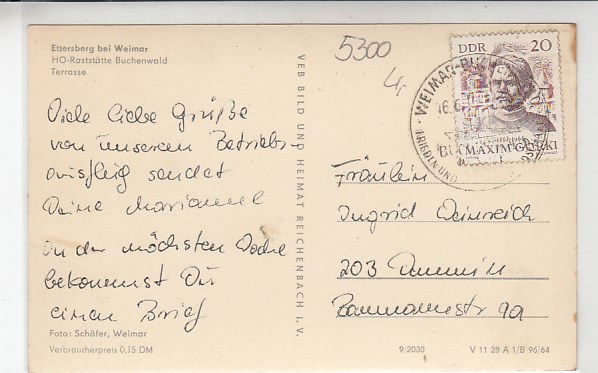 Ettersberg bei Weimar
HO-Raststätte Buchenwald
Terrasse
5300
DDR 20
MAXIM GORKI
WEIMAR-BUCH
16.6
FRIEDEN UND
Viele liebe Grüße
von unserem Betriebs-
ausflug sendet
Deine Marianne
In der nächsten Woche
bekommst Du
einen Brief
Foto: Schäfer, Weimar
Verbraucherpreis 0,15 DM
VEB BILD UND HEIMAT REICHENBACH I. V.
Fräulein
Ingrid Weinreich
203 Demmin
9a
9/2030
V 11 28 A 1/B 96/64